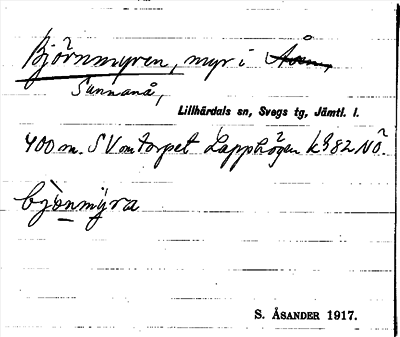 Björnmyren, myr i Åsen,
Sunnanå,
Lillhärdals sn, Svegs tg, Jämtl. l.
400 m. SV om torpet Lapphögen k982NÖ.
bjönmyra
S. ÅSANDER 1917.